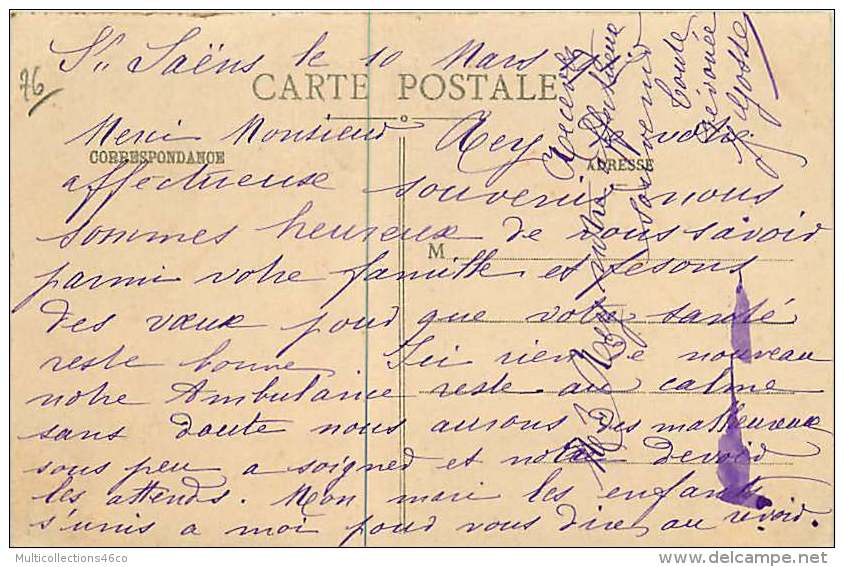 76
St Saëns le 10 Mars
CARTE POSTALE
Merci Monsieur Rey de votre
CORRESPONDANCE
ADRESSE
affectueux souvenir nous
sommes heureux de vous savoir
M
parmi votre famille et fesons
des vœux pour que votre santé
reste bonne Ici rien de nouveau
notre Ambulance reste au calme
sans doute nous aurons des malheureux
sous peu a soigner et notre devoir
les attends. Mon mari les enfants
s'unis a moi pour vous dire au revoir.
Recevez
Mr Rey notre meilleure
souvenir
toute
dévouée
J Gosse
Multicollections46co
delcampe.net